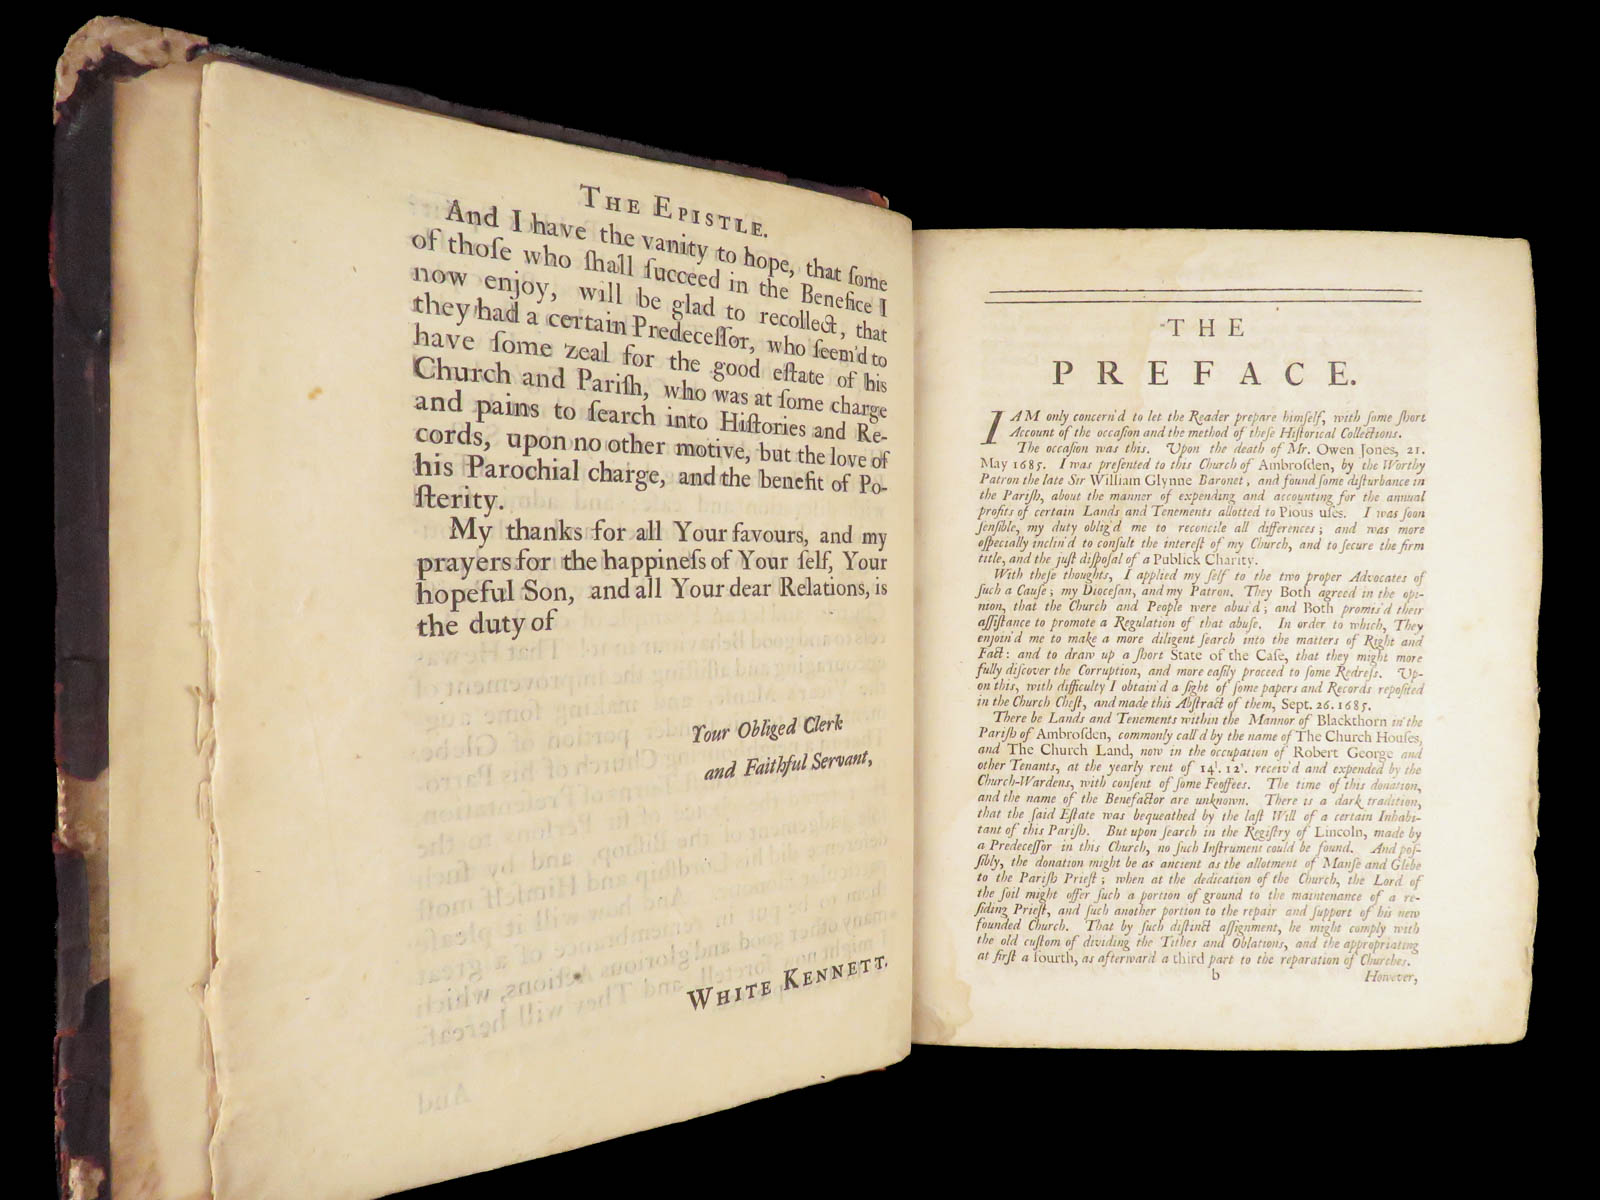 THE EPISTLE.
And I have the vanity to hope, that ſome
of thoſe who ſhall ſucceed in the Benefice I
now enjoy, will be glad to recollect, that
they had a certain Predeceſſor, who ſeem'd to
have ſome zeal for the good eſtate of his
Church and Pariſh, who was at ſome charge
and pains to ſearch into Hiſtories and Re-
cords, upon no other motive, but the love of
his Parochial charge, and the benefit of Po-
ſterity.
My thanks for all Your favours, and my
prayers for the happineſs of Your ſelf, Your
hopeful Son, and all Your dear Relations, is
the duty of
Your Obliged Clerk
and Faithful Servant,
WHITE KENNETT.
THE
PREFACE.
I AM only concern'd to let the Reader prepare himſelf, with ſome ſhort
Account of the occaſion and the method of theſe Hiſtorical Collections.
The occaſion was this. Upon the death of Mr. Owen Jones, 21.
May 1685. I was preſented to this Church of Ambroſden, by the Worthy
Patron the late Sir William Glynne Baronet, and found ſome diſturbance in
the Pariſh, about the manner of expending and accounting for the annual
profits of certain Lands and Tenements allotted to Pious uſes. I was ſoon
ſenſible, my duty oblig'd me to reconcile all differences; and was more
eſpecially inclin'd to conſult the intereſt of my Church, and to ſecure the firm
title, and the juſt diſpoſal of a Publick Charity.
With theſe thoughts, I applied my ſelf to the two proper Advocates of
ſuch a Cauſe; my Dioceſan, and my Patron. They Both agreed in the opi-
nion, that the Church and People were abus'd; and Both promis'd their
aſſiſtance to promote a Regulation of that abuſe. In order to which, They
enjoin'd me to make a more diligent ſearch into the matters of Right and
Fact: and to draw up a ſhort State of the Caſe, that they might more
fully diſcover the Corruption, and more eaſily proceed to ſome Redreſs. Up-
on this, with difficulty I obtain'd a ſight of ſome papers and Records repoſited
in the Church Cheſt, and made this Abſtract of them, Sept. 26. 1685.
There be Lands and Tenements within the Mannor of Blackthorn in the
Pariſh of Ambroſden, commonly call'd by the name of The Church Houſes,
and The Church Land, now in the occupation of Robert George and
other Tenants, at the yearly rent of 14l. 12s. receiv'd and expended by the
Church-Wardens, with conſent of ſome Feoffees. The time of this donation,
and the name of the Benefactor are unknown. There is a dark tradition,
that the ſaid Eſtate was bequeathed by the laſt Will of a certain Inhabi-
tant of this Pariſh. But upon ſearch in the Regiſtry of Lincoln, made by
a Predeceſſor in this Church, no ſuch Inſtrument could be found. And poſ-
ſibly, the donation might be as ancient as the allotment of Manſe and Glebe
to the Pariſh Prieſt; when at the dedication of the Church, the Lord of
the ſoil might offer ſuch a portion of ground to the maintenance of a re-
ſiding Prieſt, and ſuch another portion to the repair and ſupport of his new
founded Church. That by ſuch diſtinct aſſignment, he might comply with
the old cuſtom of dividing the Tithes and Oblations, and the appropriating
at firſt a fourth, as afterward a third part to the reparation of Churches.
b
However,